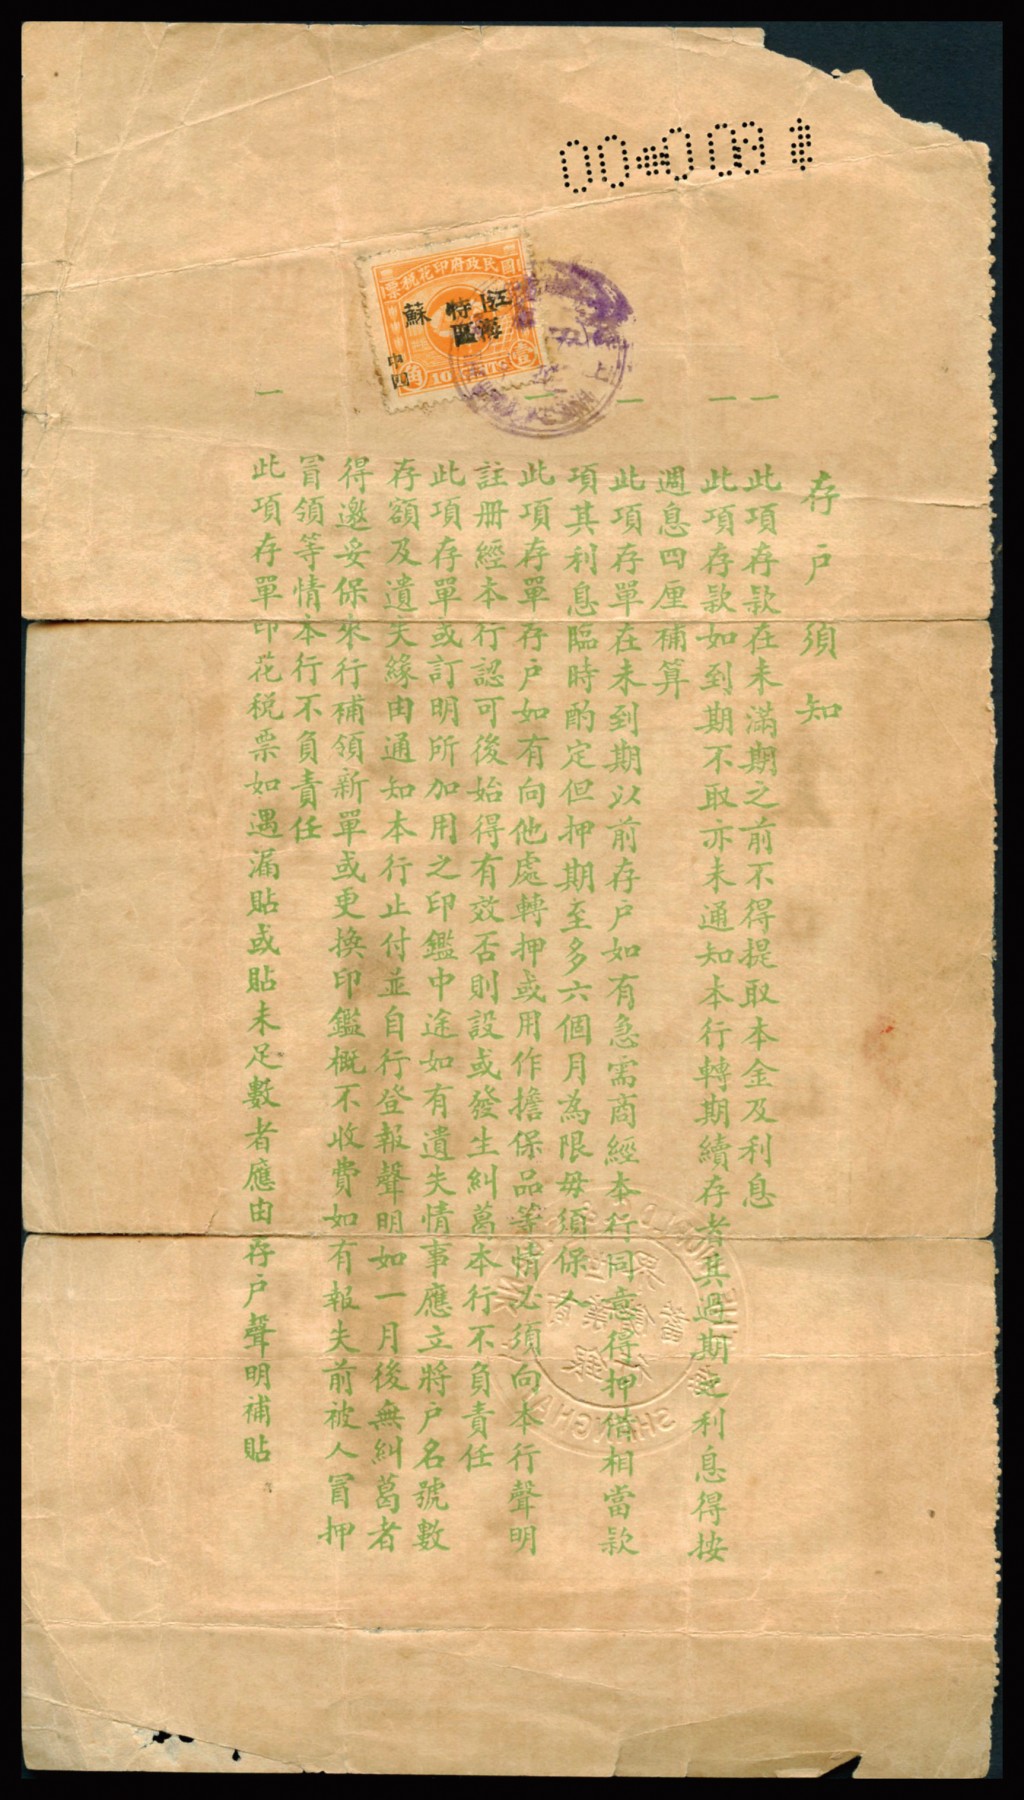 存戶須知
一 此項存款在未滿期之前不得提取本金及利息
一 此項存款如到期不取亦未通知本行轉期續存者其過期之利息得按
週息四厘補算
一 此項存單在未到期以前存戶如有急需商經本行同意得押借相當款
項其利息臨時酌定但押期至多六個月為限毋須保人
一 此項存單存戶如有向他處轉押或用作擔保品等情必須向本行聲明
註册經本行認可後始得有效否則設或發生糾葛本行不負責任
此項存單或訂明所加用之印鑑中途如有遺失情事應立將戶名號數
存額及遺失緣由通知本行止付並自行登報聲明如一月後無糾葛者
得邀妥保來行補領新單或更換印鑑概不收費如有報失前被人冒押
冒領等情本行不負責任
一 此項存單印花税票如遇漏貼或貼未足數者應由存戶聲明補貼
國民政府印花税票
江蘇
特區
申四
壹角
10 CENTS
SHANGHAI
WORLD